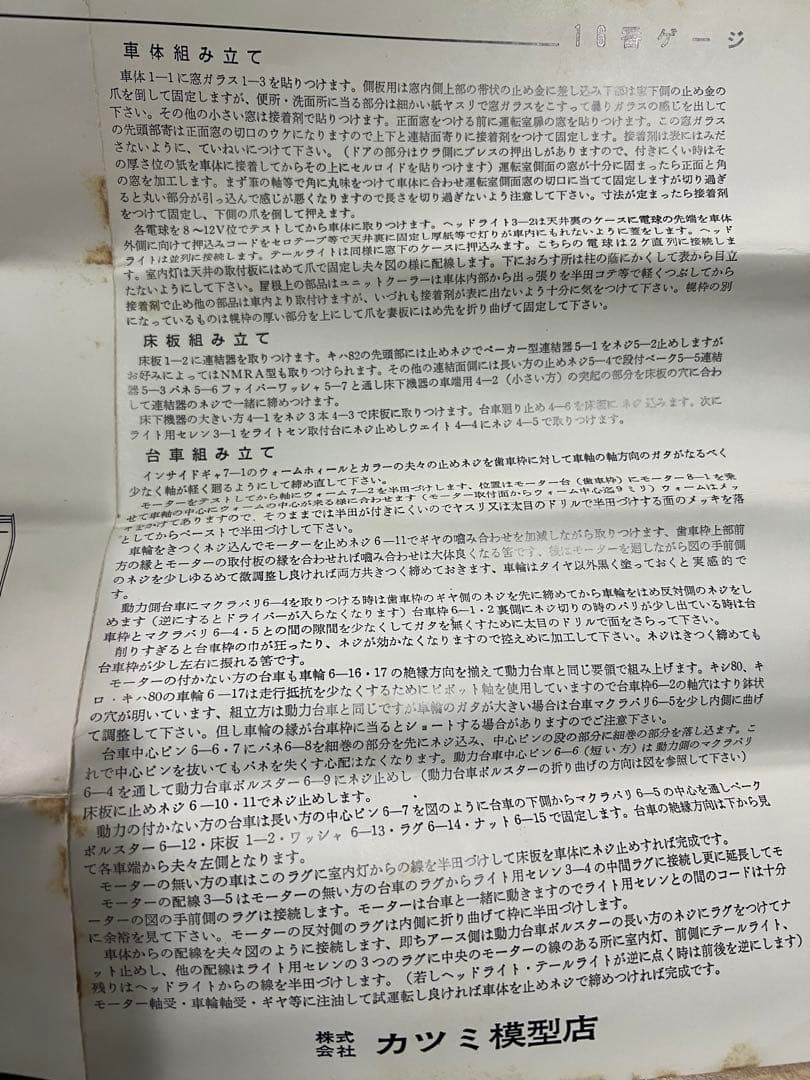 16番ゲージ
車体組み立て
車体1―1に窓ガラス1―3を貼りつけます。側板用は窓内側上部の帯状の止め金に差し込み下部は窓下側の止め金の
爪を倒して固定しますが、便所・洗面所に当る部分は細かい紙ヤスリで窓ガラスをこすって曇りガラスの感じを出して
下さい。その他の小さい窓は接着剤で貼りつけます。正面窓をつける前に運転室扉の窓を貼りつけます。この窓ガラス
の先頭部寄は正面窓の切口のウケになりますので上下と連結面寄りに接着剤をつけて固定します。接着剤は表にはみだ
さないように、ていねいにつけて下さい。(ドアの部分はウラ側にプレスの押出しがありますので、付きにくい時はそ
の厚さ位の紙を車体に接着してからその上にセルロイドを貼りつけます)運転室側面の窓が十分に固まったら正面と角
の窓を加工します。まず筆の軸等で角に丸味をつけて車体に合わせ運転室側面窓の切口に当てて固定しますが切り過ぎ
ると丸い部分が引っ込んで感じが悪くなりますので長さを切り過ぎないよう注意して下さい。寸法が定まったら接着剤
をつけて固定し、下側の爪を倒して押えます。
各電球を8～12V位でテストしてから車体に取りつけます。ヘッドライト3―2は天井裏のケースに電球の先端を車体
外側に向けて押込みコードをセロテープ等で天井裏に固定し厚紙等で灯りが車内にもれないように蓋をします。ヘッド
ライトは並列に接続します。テールライトは同様に窓下のケースに押込みます。こちらの電球は2ケ直列に接続しま
す。室内灯は天井の取付板にはめて爪で固定し夫々図の様に配線します。下におろす所は柱の蔭にかくして表から目立
たないようにして下さい。屋根上の部品はユニットクーラーは車体内部から出っ張りを半田コテ等で軽くつぶしてから
接着剤で止め他の部品は車内より取付けますが、いづれも接着剤が表に出ないよう十分に気をつけて下さい。幌枠の別
になっているものは幌枠の厚い部分を上にして爪を妻板にはめ先を折り曲げて固定して下さい。
床板組み立て
床板1―2に連結器を取りつけます。キハ82の先頭部には止めネジでベーカー型連結器5―1をネジ5―2止めしますが
お好みによってはNMRA型も取りつけられます。その他の連結面側には長い方の止めネジ5―4で段付ベーク5―5連結
器5―3バネ5―6ファイバーワッシャ5―7と通し床下機器の車端用4―2(小さい方)の突起の部分を床板の穴に合わ
して連結器のネジで一緒に締めつけます。
床下機器の大きい方4―1をネジ3本4―3で床板に取りつけます。台車廻り止め4―6を床板にネジ込みます。次に
ライト用セレン3―1をライトセン取付台にネジ止めしウエイト4―4にネジ4―5で取りつけます。
台車組み立て
インサイドギヤ7―1のウォームホィールとカラーの夫々の止めネジを歯車枠に対して車軸の軸方向のガタがなるべく
少なく軸が軽く廻るようにして締め直して下さい。
モーターをテストしてから軸にウォーム7―2を半田づけします、位置はモーター台(歯車枠)にモーター8―1を乗
せて車軸の中心にウォームの中心が来る様に合わせます(モーター取付面からウォーム中心迄9ミリ)ウォームはメッ
キをかけてありますので、そのままでは半田が付きにくいのでヤスリ又は太目のドリルで半田づけする面のメッキを落
としてからペーストで半田づけして下さい。
車輪をきつくネジ込んでモーターを止めネジ6―11でギヤの噛み合わせを加減しながら取りつけます、歯車枠上部前
方の縁とモーターの取付板の縁を合わせれば噛み合わせは大体良くなる筈です、後はモーターを廻しながら図の手前側
のネジを少しゆるめて微調整し良ければ両方共きつく締めておきます、車輪はタイヤ以外黒く塗っておくと実感的で
す。
動力側台車にマクラバリ6―4を取りつける時は歯車枠のギヤ側のネジを先に締めてから車輪をはめ反対側のネジをし
めます(逆にするとドライバーが入らなくなります)台車枠6―1・2裏側にネジ切りの時のバリが少し出ている時は台
車枠とマクラバリ6―4・5との間の隙間を少なくしてガタを無くすために太目のドリルで面をさらって下さい。
削りすぎると台車枠の巾が狂ったり、ネジが効かなくなりますので控えめに加工して下さい。ネジはきつく締めても
台車枠が少し左右に振れる筈です。
モーターの付かない方の台車も車輪6―16・17の絶縁方向を揃えて動力台車と同じ要領で組み上げます。キシ80、キ
ロ・キハ80の車輪6―17は走行抵抗を少なくするためにピボット軸を使用していますので台車枠6―2の軸穴はすり鉢状
の穴が明いています、組立方は動力台車と同じですが車輪のガタが大きい場合は台車マクラバリ6―5を少し内側に曲げ
て調整して下さい。但し車輪の縁が台車枠に当るとショートする場合がありますのでご注意下さい。
台車中心ピン6―6・7にバネ6―8を細巻の部分を先にネジ込み、中心ピンの段の部分に細巻の部分を落し込ます。こ
れで中心ピンを抜いてもバネを失くす心配はなくなります。動力台車中心ピン6―6(短い方)は動力側のマクラバリ
6―4を通して動力台車ボルスター6―9にネジ止めし(動力台車ボルスターの折り曲げの方向は図を参照して下さい)
床板に止めネジ6―10・11でネジ止めします。
動力の付かない方の台車は長い方の中心ピン6―7を図のように台車の下側からマクラバリ6―5の中心を通しベーク
ボルスター6―12・床板1―2・ワッシャ6―13・ラグ6―14・ナット6―15で固定します。台車の絶縁方向は下から見
て各車端から夫々左側となります。
モーターの無い方の車はこのラグに室内灯からの線を半田づけして床板を車体にネジ止めすれば完成です。
モーターの配線3―5はモーターの無い方の台車のラグからライト用セレン3―4の中間ラグに接続し更に延長してモ
ーターの図の手前側のラグは接続します。モーターは台車と一緒に動きますのでライト用セレンとの間のコードは十分
に余裕を見て下さい。モーターの反対側のラグは内側に折り曲げて枠に半田づけします。
車体からの配線を夫々図のように接続します、即ちアース側は動力台車ボルスターの長い方のネジにラグをつけてナ
ット止めし、他の配線はライト用セレンの3つのラグに中央のモーターの線のある所に室内灯、前側にテールライト、
残りはヘッドライトからの線を半田づけします。(若しヘッドライト・テールライトが逆に点く時は前後を逆にします)
モーター軸受・車輪軸受・ギヤ等に注油して試運転し良ければ車体を止めネジで締めつければ完成です。
株式会社 カツミ模型店